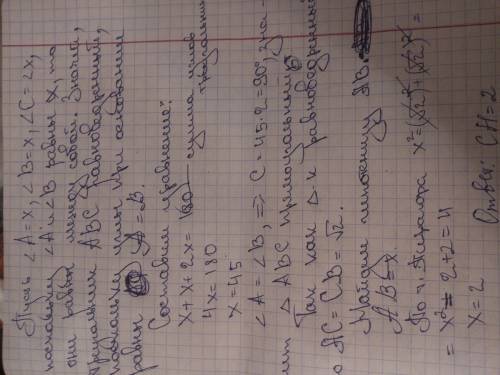 Пусть ∠A=x, ∠B=x, ∠C=2x,
поскольку ∠A и ∠B равны x, то
они равны между собой. Значит,
треугольник ABC равнобедренный,
поскольку углы при основании
равны A=B.
Составим уравнение:
x+x+2x=180 - сумма углов
треугольни
4x=180
x=45
∠A=∠B, => C=45·2=90°, зна-
чит △ ABC прямоугольный
Так как △-к равнобедренный
то AC=CB=√2.
Найдём гипотенузу AB.
AB=x.
По т. Пифагора x²=(√2)²+(√2)²=
= x²= 2+2=4
x=2
Ответ: CH=2